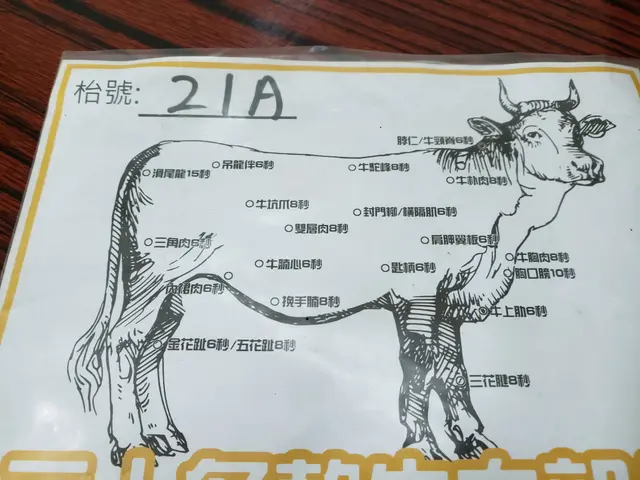 枱號: 21A
脖仁/牛頸脊6秒
吊龍伴6秒
牛鴕峰8秒
滑尾龍15秒
牛朴肉8秒
牛坑爪8秒
封門柳/橫隔肌6秒
雙層肉8秒
三角肉6秒
肩胛翼板6秒
牛腩心6秒
匙柄6秒
牛胸肉8秒
胸口膀10秒
內裙肉6秒
挽手腩8秒
牛上肋6秒
金花趾6秒/五花趾8秒
三花腱8秒